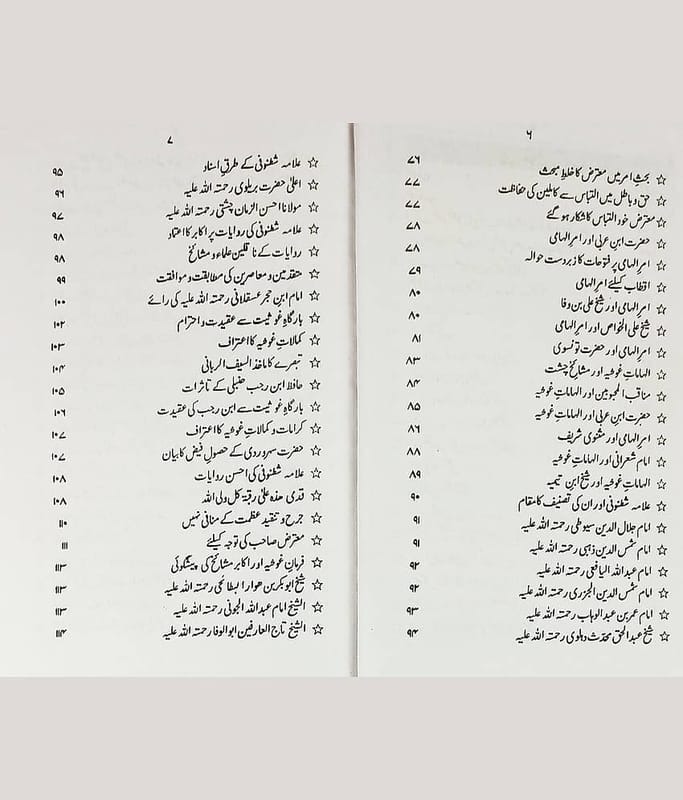 ۶
☆ بحثِ امر میں معترض کا خلطِ مبحث ۷۶
☆ حق و باطل میں التباس سے کاملین کی حفاظت ۷۷
☆ معترض خود التباس کا شکار ہو گئے ۷۷
☆ حضرت ابنِ عربی اور امرِ الہامی ۷۸
☆ امرِ الہامی پر فتوحات کا زبردست حوالہ ۷۸
☆ اقطاب کیلئے امرِ الہامی ۷۹
☆ امرِ الہامی اور شیخ علی بن وفا ۸۰
☆ شیخ علی الخواص اور امرِ الہامی ۸۰
☆ امرِ الہامی اور حضرت تونسوی ۸۱
☆ الہاماتِ غوثیہ اور مشائخِ چشت ۸۳
☆ مناقب المحبوبین اور الہاماتِ غوثیہ ۸۴
☆ حضرت ابنِ عربی اور الہاماتِ غوثیہ ۸۵
☆ امرِ الہامی اور مثنوی شریف ۸۶
☆ امام شعرانی اور الہاماتِ غوثیہ ۸۸
☆ الہاماتِ غوثیہ اور شیخ ابنِ تیمیہ ۸۹
☆ علامہ شطنوفی اور ان کی تصنیف کا مقام ۹۰
☆ امام جلال الدین سیوطی رحمتہ اللہ علیہ ۹۱
☆ امام شمس الدین ذہبی رحمتہ اللہ علیہ ۹۱
☆ امام عبداللہ الیافعی رحمتہ اللہ علیہ ۹۲
☆ امام شمس الدین الجزری رحمتہ اللہ علیہ ۹۲
☆ امام عمر بن عبدالوہاب رحمتہ اللہ علیہ ۹۳
☆ شیخ عبدالحق محدّث دہلوی رحمتہ اللہ علیہ ۹۴
۷
☆ علامہ شطنوفی کے طرقِ اسناد ۹۵
☆ اعلیٰ حضرت بریلوی رحمتہ اللہ علیہ ۹۶
☆ مولانا احسن الزمان چشتی رحمتہ اللہ علیہ ۹۷
☆ علامہ شطنوفی کی روایات پر اکابر کا اعتماد ۹۸
☆ روایات کے ناقلین علماء و مشائخ ۹۸
☆ متقدمین و معاصرین کی مطابقت و موافقت ۹۹
☆ امام ابنِ حجر عسقلانی رحمتہ اللہ علیہ کی رائے ۱۰۰
☆ بارگاہِ غوثیت سے عقیدت و احترام ۱۰۲
☆ کمالاتِ غوثیہ کا اعتراف ۱۰۳
☆ تبصرے کا ماخذ السیف الربانی ۱۰۴
☆ حافظ ابن رجب حنبلی کے تاثرات ۱۰۵
☆ بارگاہِ غوثیت سے ابن رجب کی عقیدت ۱۰۶
☆ کرامات و کمالاتِ غوثیہ کا اعتراف ۱۰۷
☆ حضرت سہروردی کے حصولِ فیض کا بیان ۱۰۷
☆ علامہ شطنوفی کی احسن روایات ۱۰۸
☆ قدمی ھذہ علیٰ رقبۃ کل ولی اللہ ۱۰۸
☆ جرح و تنقید عظمت کے منافی نہیں ۱۱۰
☆ معترض صاحب کی توجہ کیلئے ۱۱۱
☆ فرمانِ غوثیہ اور اکابر مشائخ کی پیشگوئی ۱۱۳
☆ شیخ ابوبکر بن ھوار البطائحی رحمتہ اللہ علیہ ۱۱۳
☆ الشیخ امام عبداللہ الجونی رحمتہ اللہ علیہ ۱۱۳
☆ الشیخ تاج العارفین ابوالوفا رحمتہ اللہ علیہ ۱۱۴